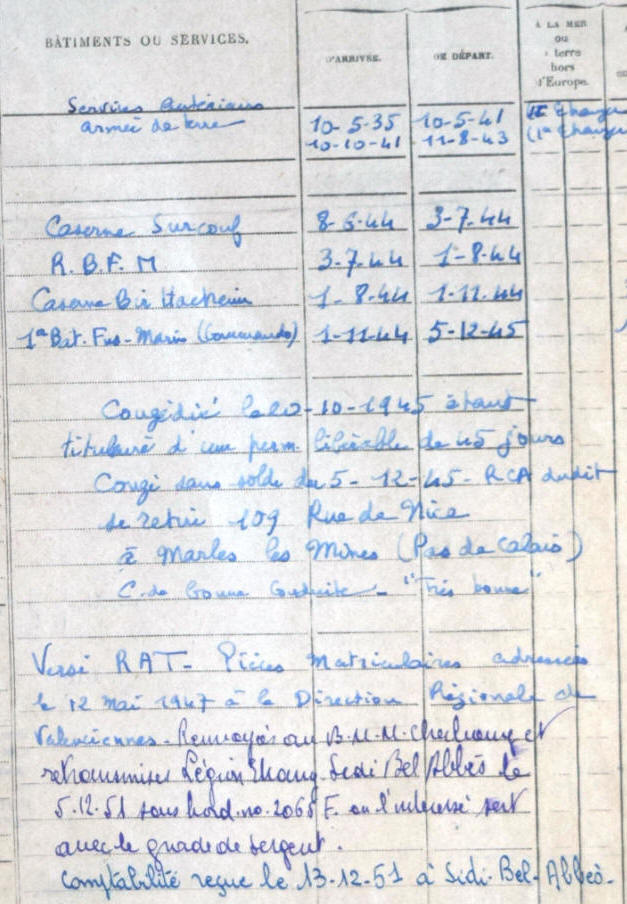 BÂTIMENTS OU SERVICES.
D'ARRIVÉE.
DE DÉPART.
A LA MER
ou
à terre
hors
d'Europe.
Services antérieurs
armée de terre 10-5-35 10-5-41
10-10-41 11-8-43
Caserne Surcouf 8-6-44 3-7-44
R.B.F.M 3-7-44 1-8-44
Caserne Bir Hacheim 1-8-44 1-11-44
1er Bat. Fus-Marin (Commando) 1-11-44 5-12-45
Congédié le 20-10-1945 étant
titulaire d'une perm. libérable de 45 jours
Congé sans solde du 5-12-45 - RCA dudit
se retire 109 Rue de Nice
à Marles les Mines (Pas de Calais)
C. de bonne conduite - "Très bonne"
Versé RAT - Pièces Matriculaires adressées
le 12 Mai 1947 à la Direction Régionale de
Valenciennes - Renvoyés au B.M.M. Cherbourg et
retransmises Légion Etrang. Sidi Bel Abbès le
5.12.51 sous bord. no. 2068 F. ou l'intéressé sert
avec le grade de sergent.
Comptabilité reçue le 13-12-51 à Sidi-Bel-Abbès-